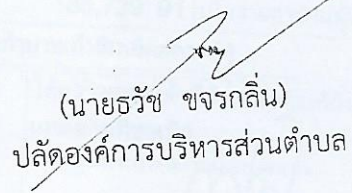 (นายธวัช ขจรกลิ่น)
ปลัดองค์การบริหารส่วนตำบล